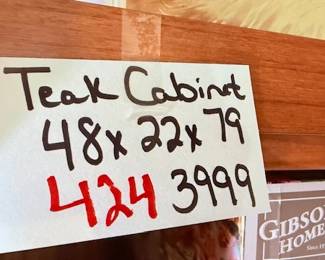 Teak Cabinet
48x22x79
424 3999
GIBSON
HOME